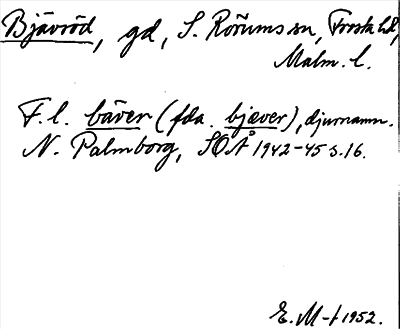 Bjävröd, gd, S. Rörums sn, Frosta hd,
Malm. l.
F. l. bäver (fda. bjæver), djurnamn.
N. Palmborg, SOÅ 1942-45 s. 16.
E. M-f 1952.